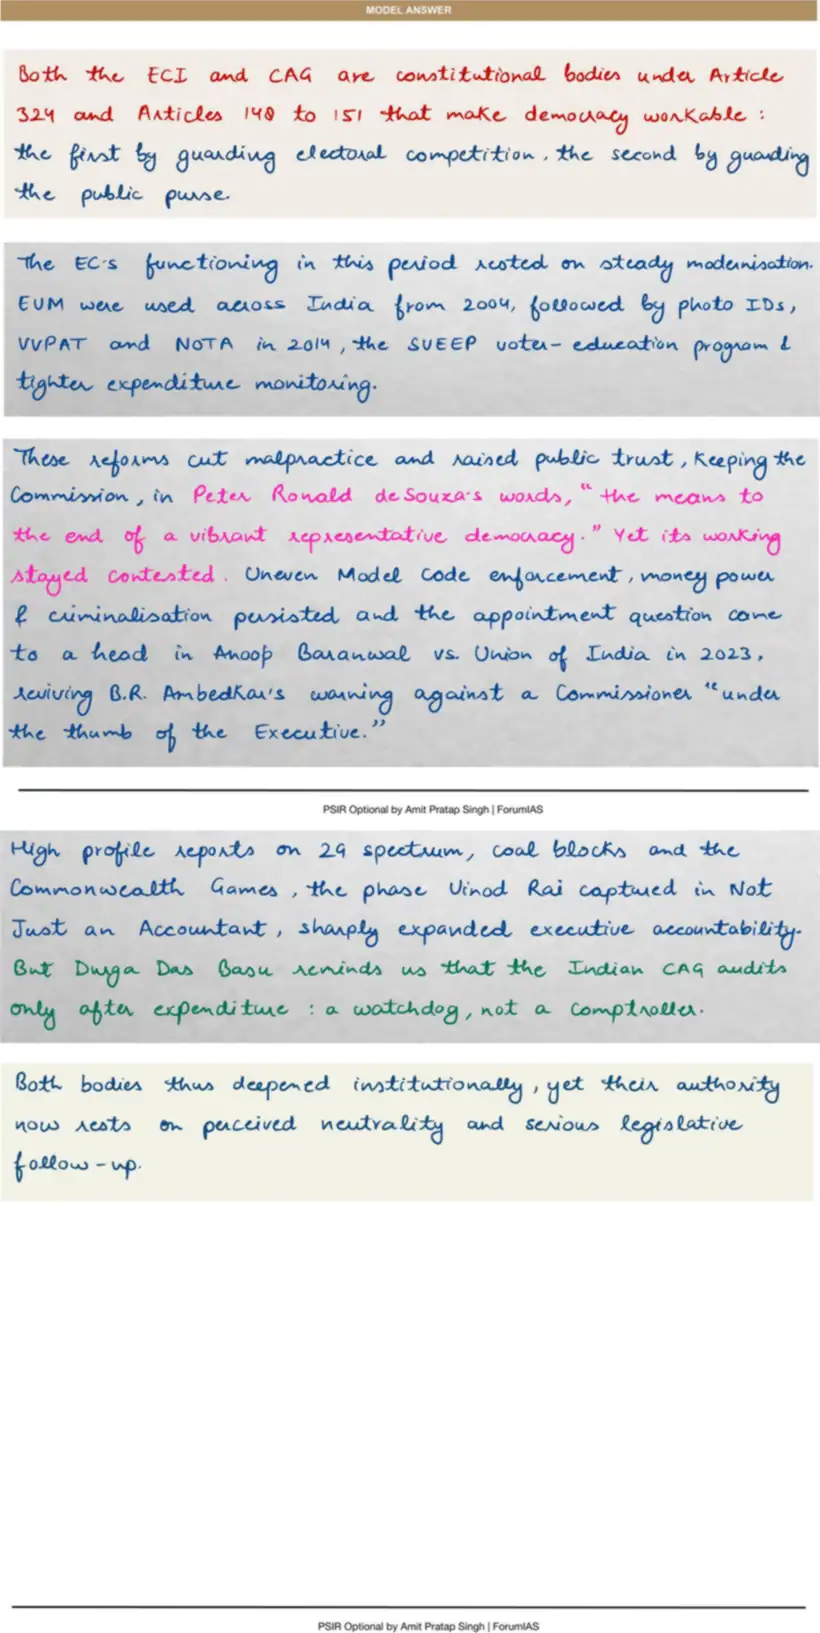 MODEL ANSWER
Both the ECI and CAG are constitutional bodies under Article
324 and Articles 148 to 151 that make democracy workable :
the first by guarding electoral competition, the second by guarding
the public purse.
The EC's functioning in this period rested on steady modernisation.
EVM were used across India from 2004, followed by photo IDs,
VVPAT and NOTA in 2014, the SVEEP voter-education program &
tighter expenditure monitoring.
These reforms cut malpractice and raised public trust, keeping the
Commission, in Peter Ronald deSouza's words, "the means to
the end of a vibrant representative democracy." Yet its working
stayed contested. Uneven Model Code enforcement, money power
& criminalisation persisted and the appointment question came
to a head in Anoop Baranwal vs. Union of India in 2023,
reviving B.R. Ambedkar's warning against a Commissioner "under
the thumb of the Executive."
PSIR Optional by Amit Pratap Singh | ForumIAS
High profile reports on 2G spectrum, coal blocks and the
Commonwealth Games, the phase Vinod Rai captured in Not
Just an Accountant, sharply expanded executive accountability.
But Durga Das Basu reminds us that the Indian CAG audits
only after expenditure : a watchdog, not a comptroller.
Both bodies thus deepened institutionally, yet their authority
now rests on perceived neutrality and serious legislative
follow-up.
PSIR Optional by Amit Pratap Singh | ForumIAS